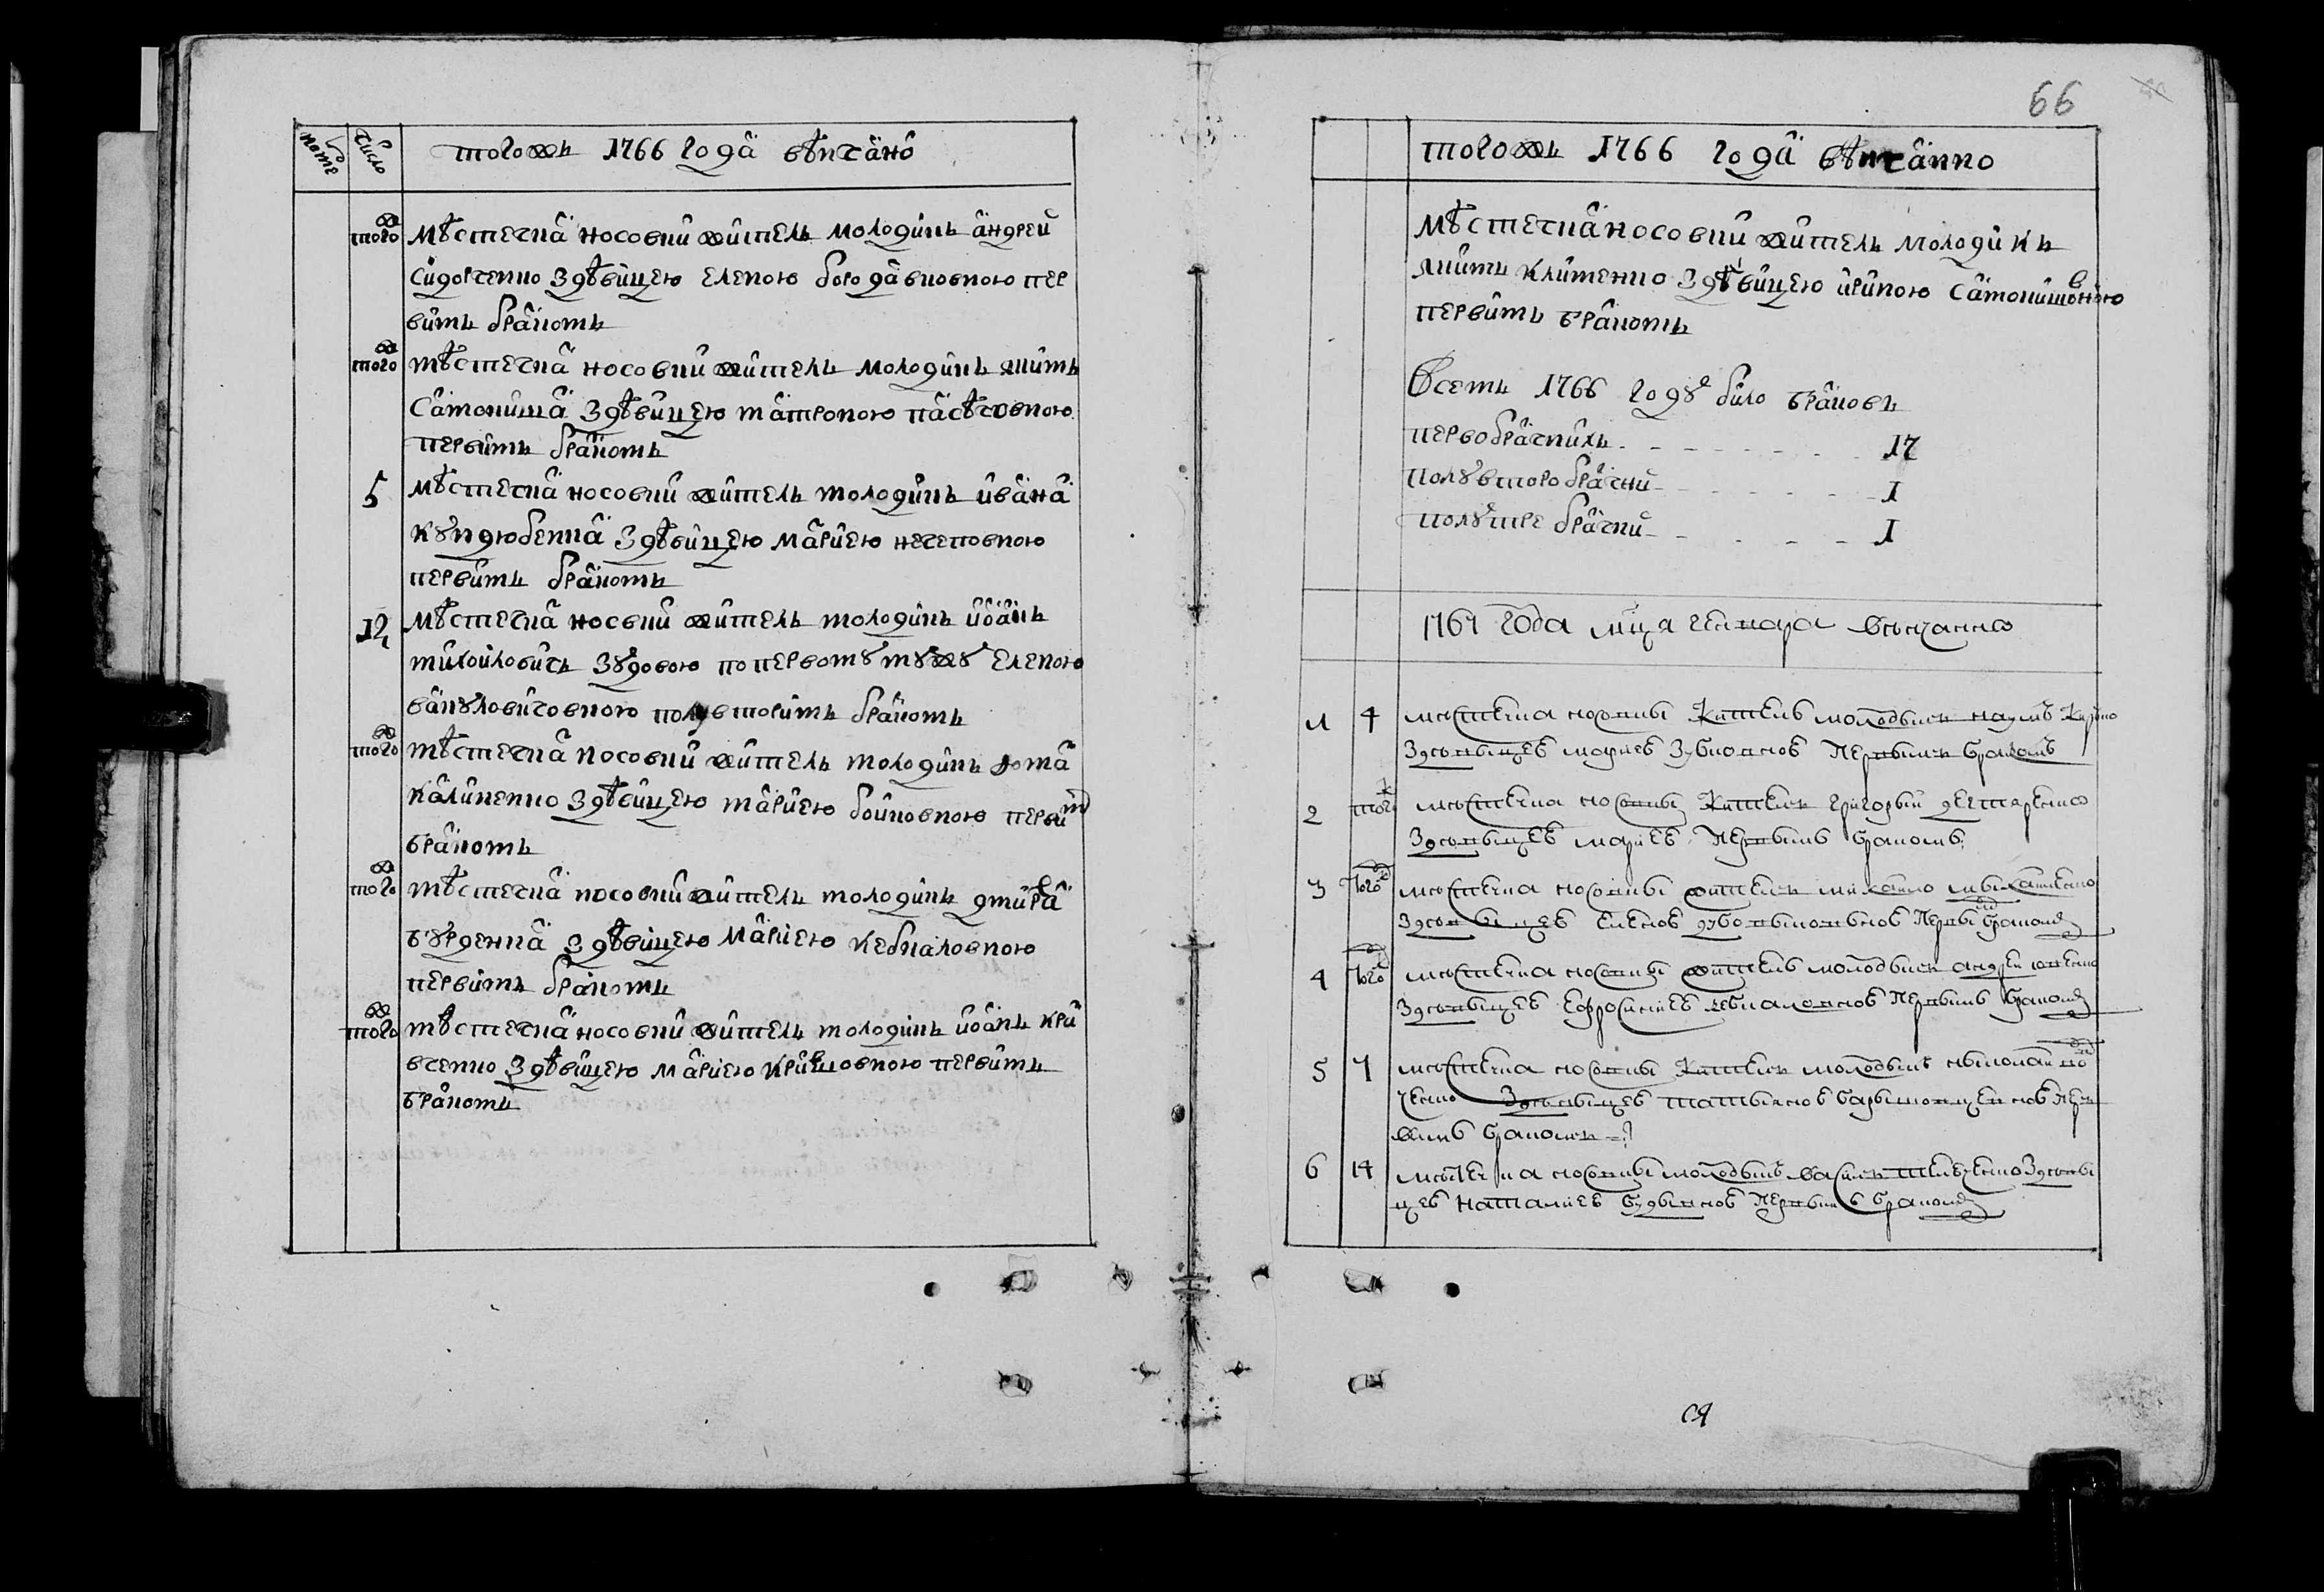 номе число тогожъ 1766 года вѣнчано
тогож мѣстечка носовки житель молодикъ андрей
сидорченко здѣвицею еленою бородавковною пер
вимъ бракомъ
тогож мѣстечка носовки житель молодикъ якимъ
самокиша здѣвицею матроною пасѣчовною
первимъ бракомъ
5 мѣстечка носовки житель молодикъ ивана
кундюбенка здѣвицею мариею нечеповною
первимъ бракомъ
12 мѣстечка носовки житель молодикъ иоанъ
михайловичъ зудовою по первому мужу еленою
вакуловичовною полувторимъ бракомъ
тогож мѣстечка носовки житель молодикъ хома
калиненко здѣвицею мариею бойковною первим
бракомъ
тогож мѣстечка носовки житель молодикъ дмитра
бурденка здѣвицею мариею кебкаловною
первимъ бракомъ
тогож мѣстечка носовки житель молодикъ иоанъ кри
вченко здѣвицею мариею первимъ
бракомъ
66
тогожъ 1766 года вѣнчанно
мѣстечка носовки житель молодикъ
якимъ клименко здѣвицею ириною самокишовною
первимъ бракомъ
Всемъ 1766 году било браковъ
первобрачнихъ 17
полувторобрачни 1
полутребрачни 1
1767 года мца генвара всьчанно
1 4 мѣстечка носовки житель молодыкъ наумъ
здѣвыцею мариею зубковною первымъ бракомъ
2 тогож мѣстечка носовки житель григорый
здѣвыцею мариею первымъ бракомъ
3 тогож мѣстечка носовки житель михайло
здѣвыцею еленою первым бракомъ
4 тогож мѣстечка носовки житель молодыкъ андрей
здѣвыцею ефросиниею кебкаловною первымъ бракомъ
5 7 мѣстечка носовки житель молодыкъ ныколай
ченко здѣвыцею татыяною пер
вимъ бракомъ
6 14 мѣстечка носовки молодыкъ василь здѣвы
цею наталиею первымъ бракомъ